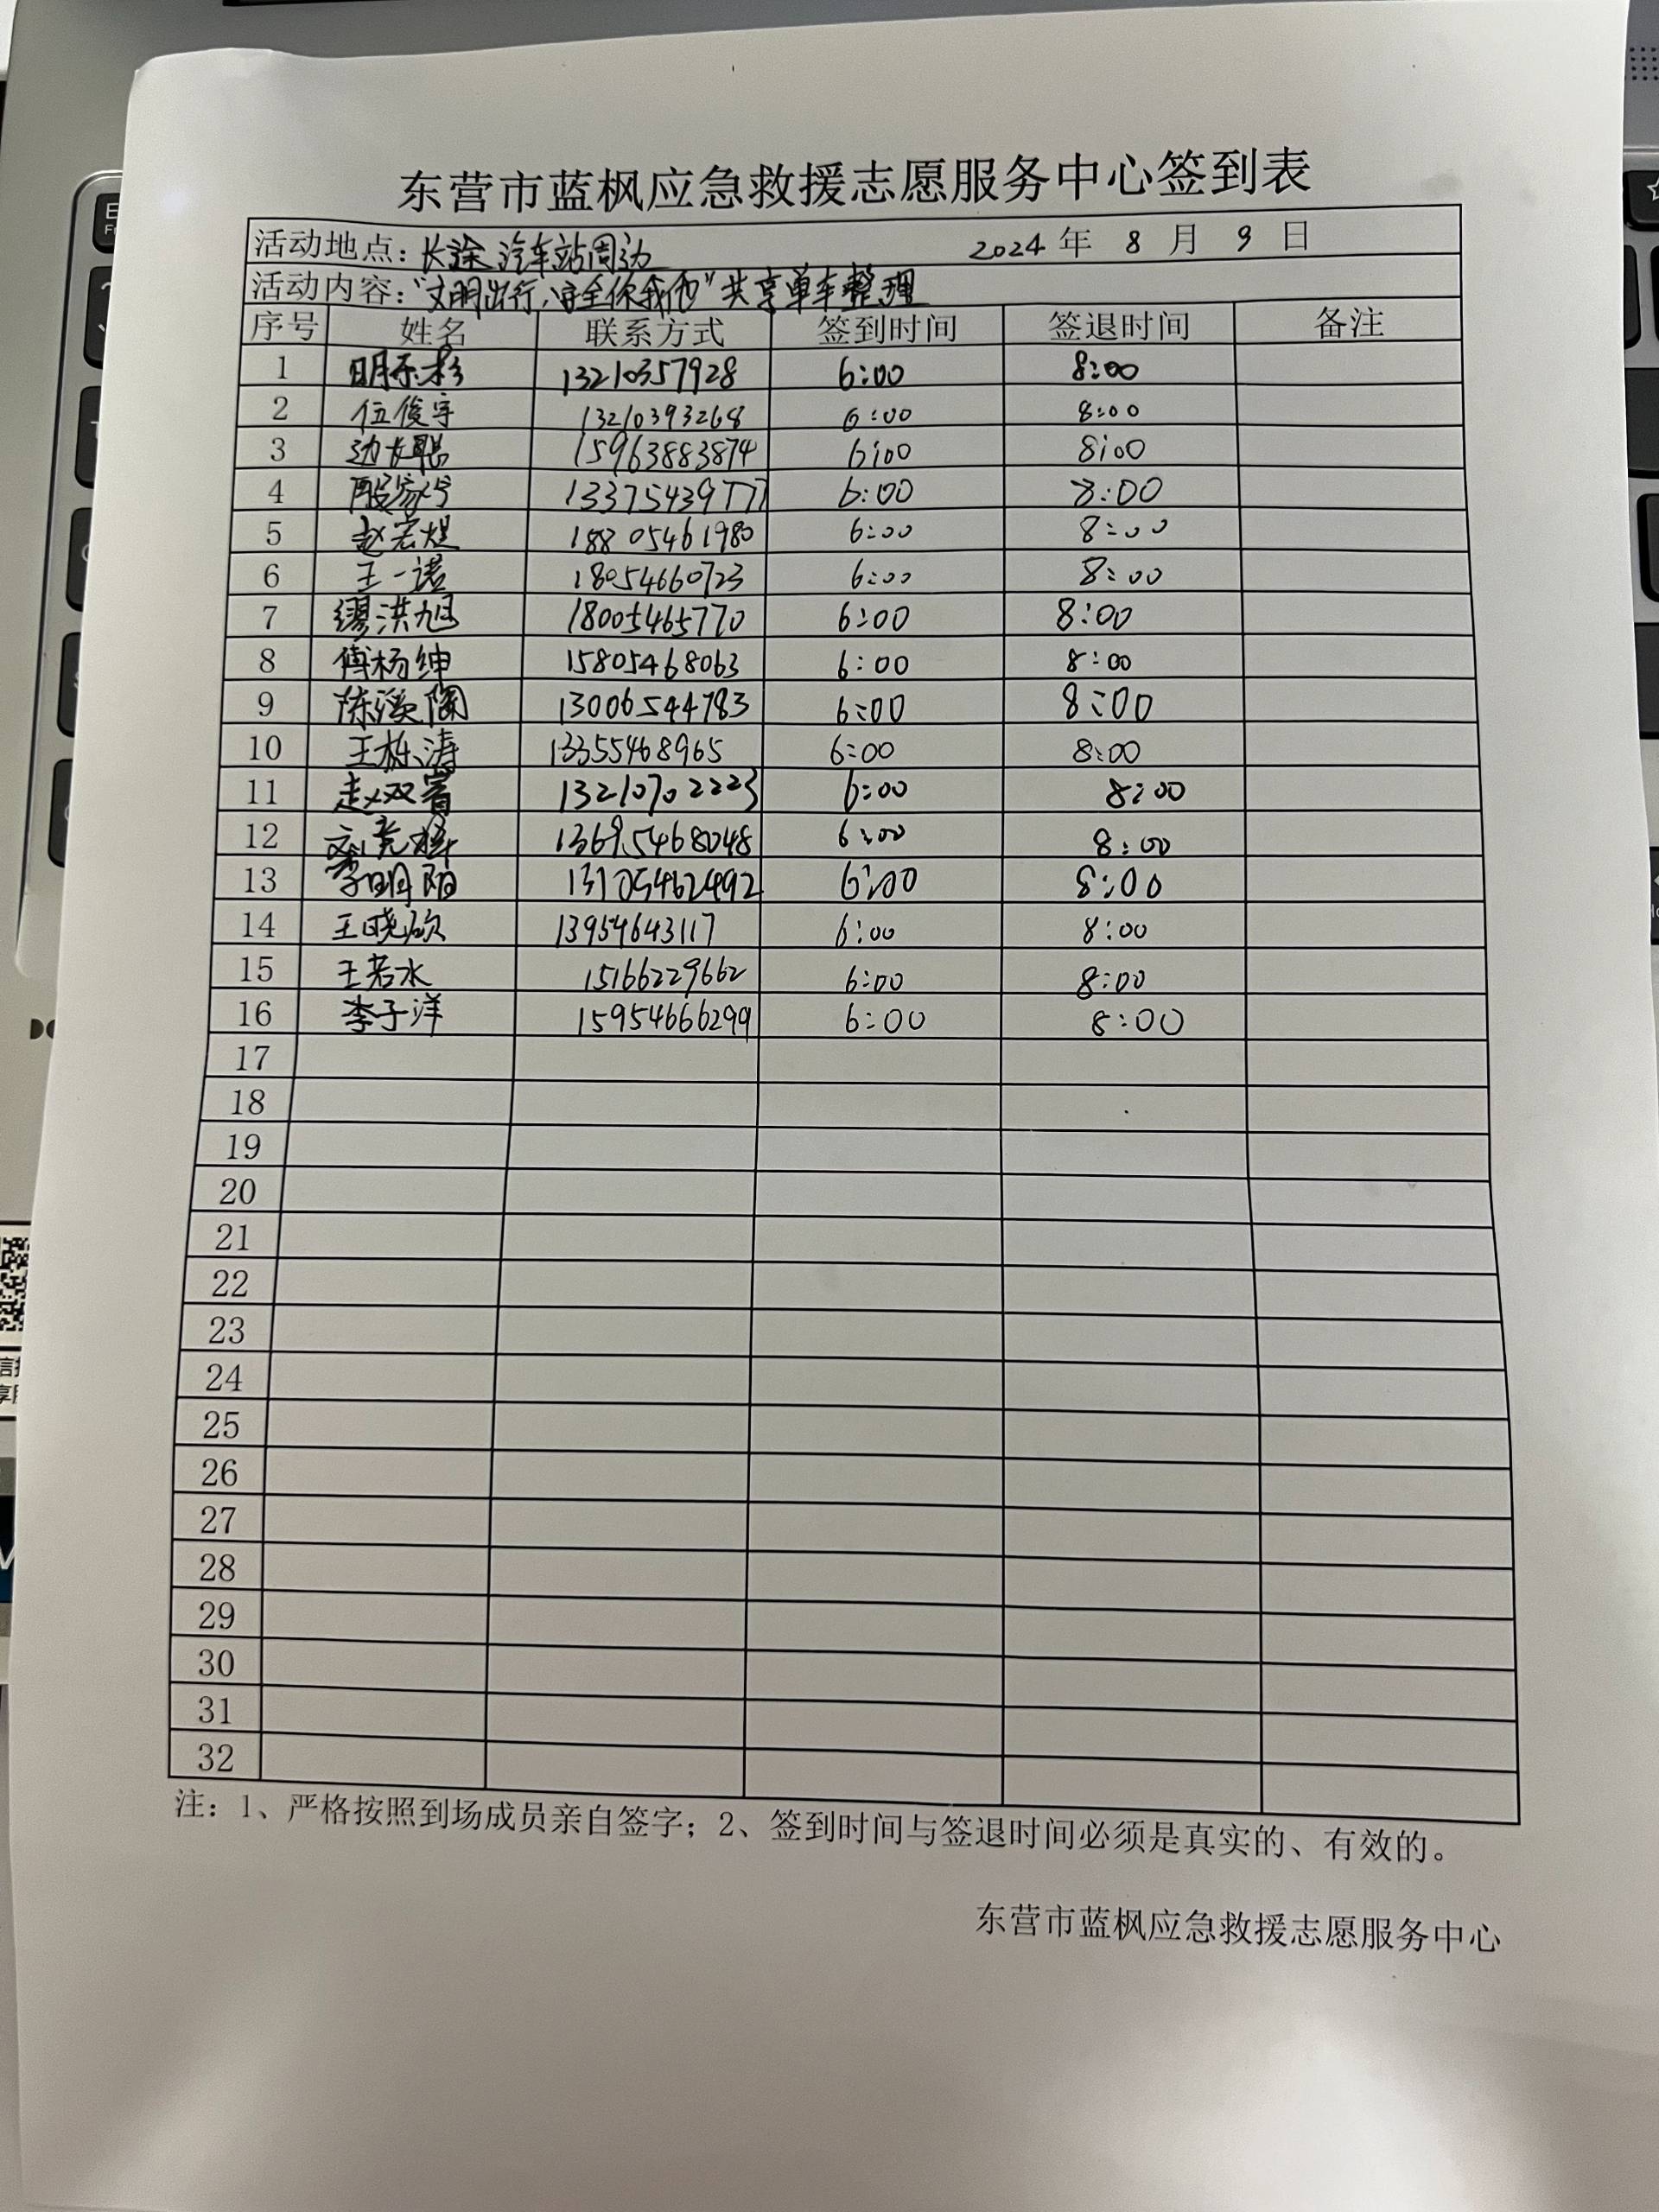 东营市蓝枫应急救援志愿服务中心签到表
活动地点：长途汽车站周边 2024 年 8 月 9 日
活动内容："文明出行，安全你我他"共享单车整理
序号 姓名 联系方式 签到时间 签退时间 备注
1 13210357928 6:00 8:00
2 伍俊宇 13210393268 6:00 8:00
3 边长聪 15963883874 6:00 8:00
4 殷家兮 13375439777 6:00 8:00
5 赵宏煜 18805461980 6:00 8:00
6 王一诺 18054660723 6:00 8:00
7 缪洪旭 18005465770 6:00 8:00
8 傅杨绅 15805468063 6:00 8:00
9 陈溪陶 13006544783 6:00 8:00
10 王栋涛 13355468965 6:00 8:00
11 赵双 13210702223 6:00 8:00
12 13695468048 6:00 8:00
13 李明阳 13105462492 6:00 8:00
14 王晓欣 13954643117 6:00 8:00
15 王若水 15166229662 6:00 8:00
16 李子洋 15954666299 6:00 8:00
17
18
19
20
21
22
23
24
25
26
27
28
29
30
31
32
注：1、严格按照到场成员亲自签字；2、签到时间与签退时间必须是真实的、有效的。
东营市蓝枫应急救援志愿服务中心